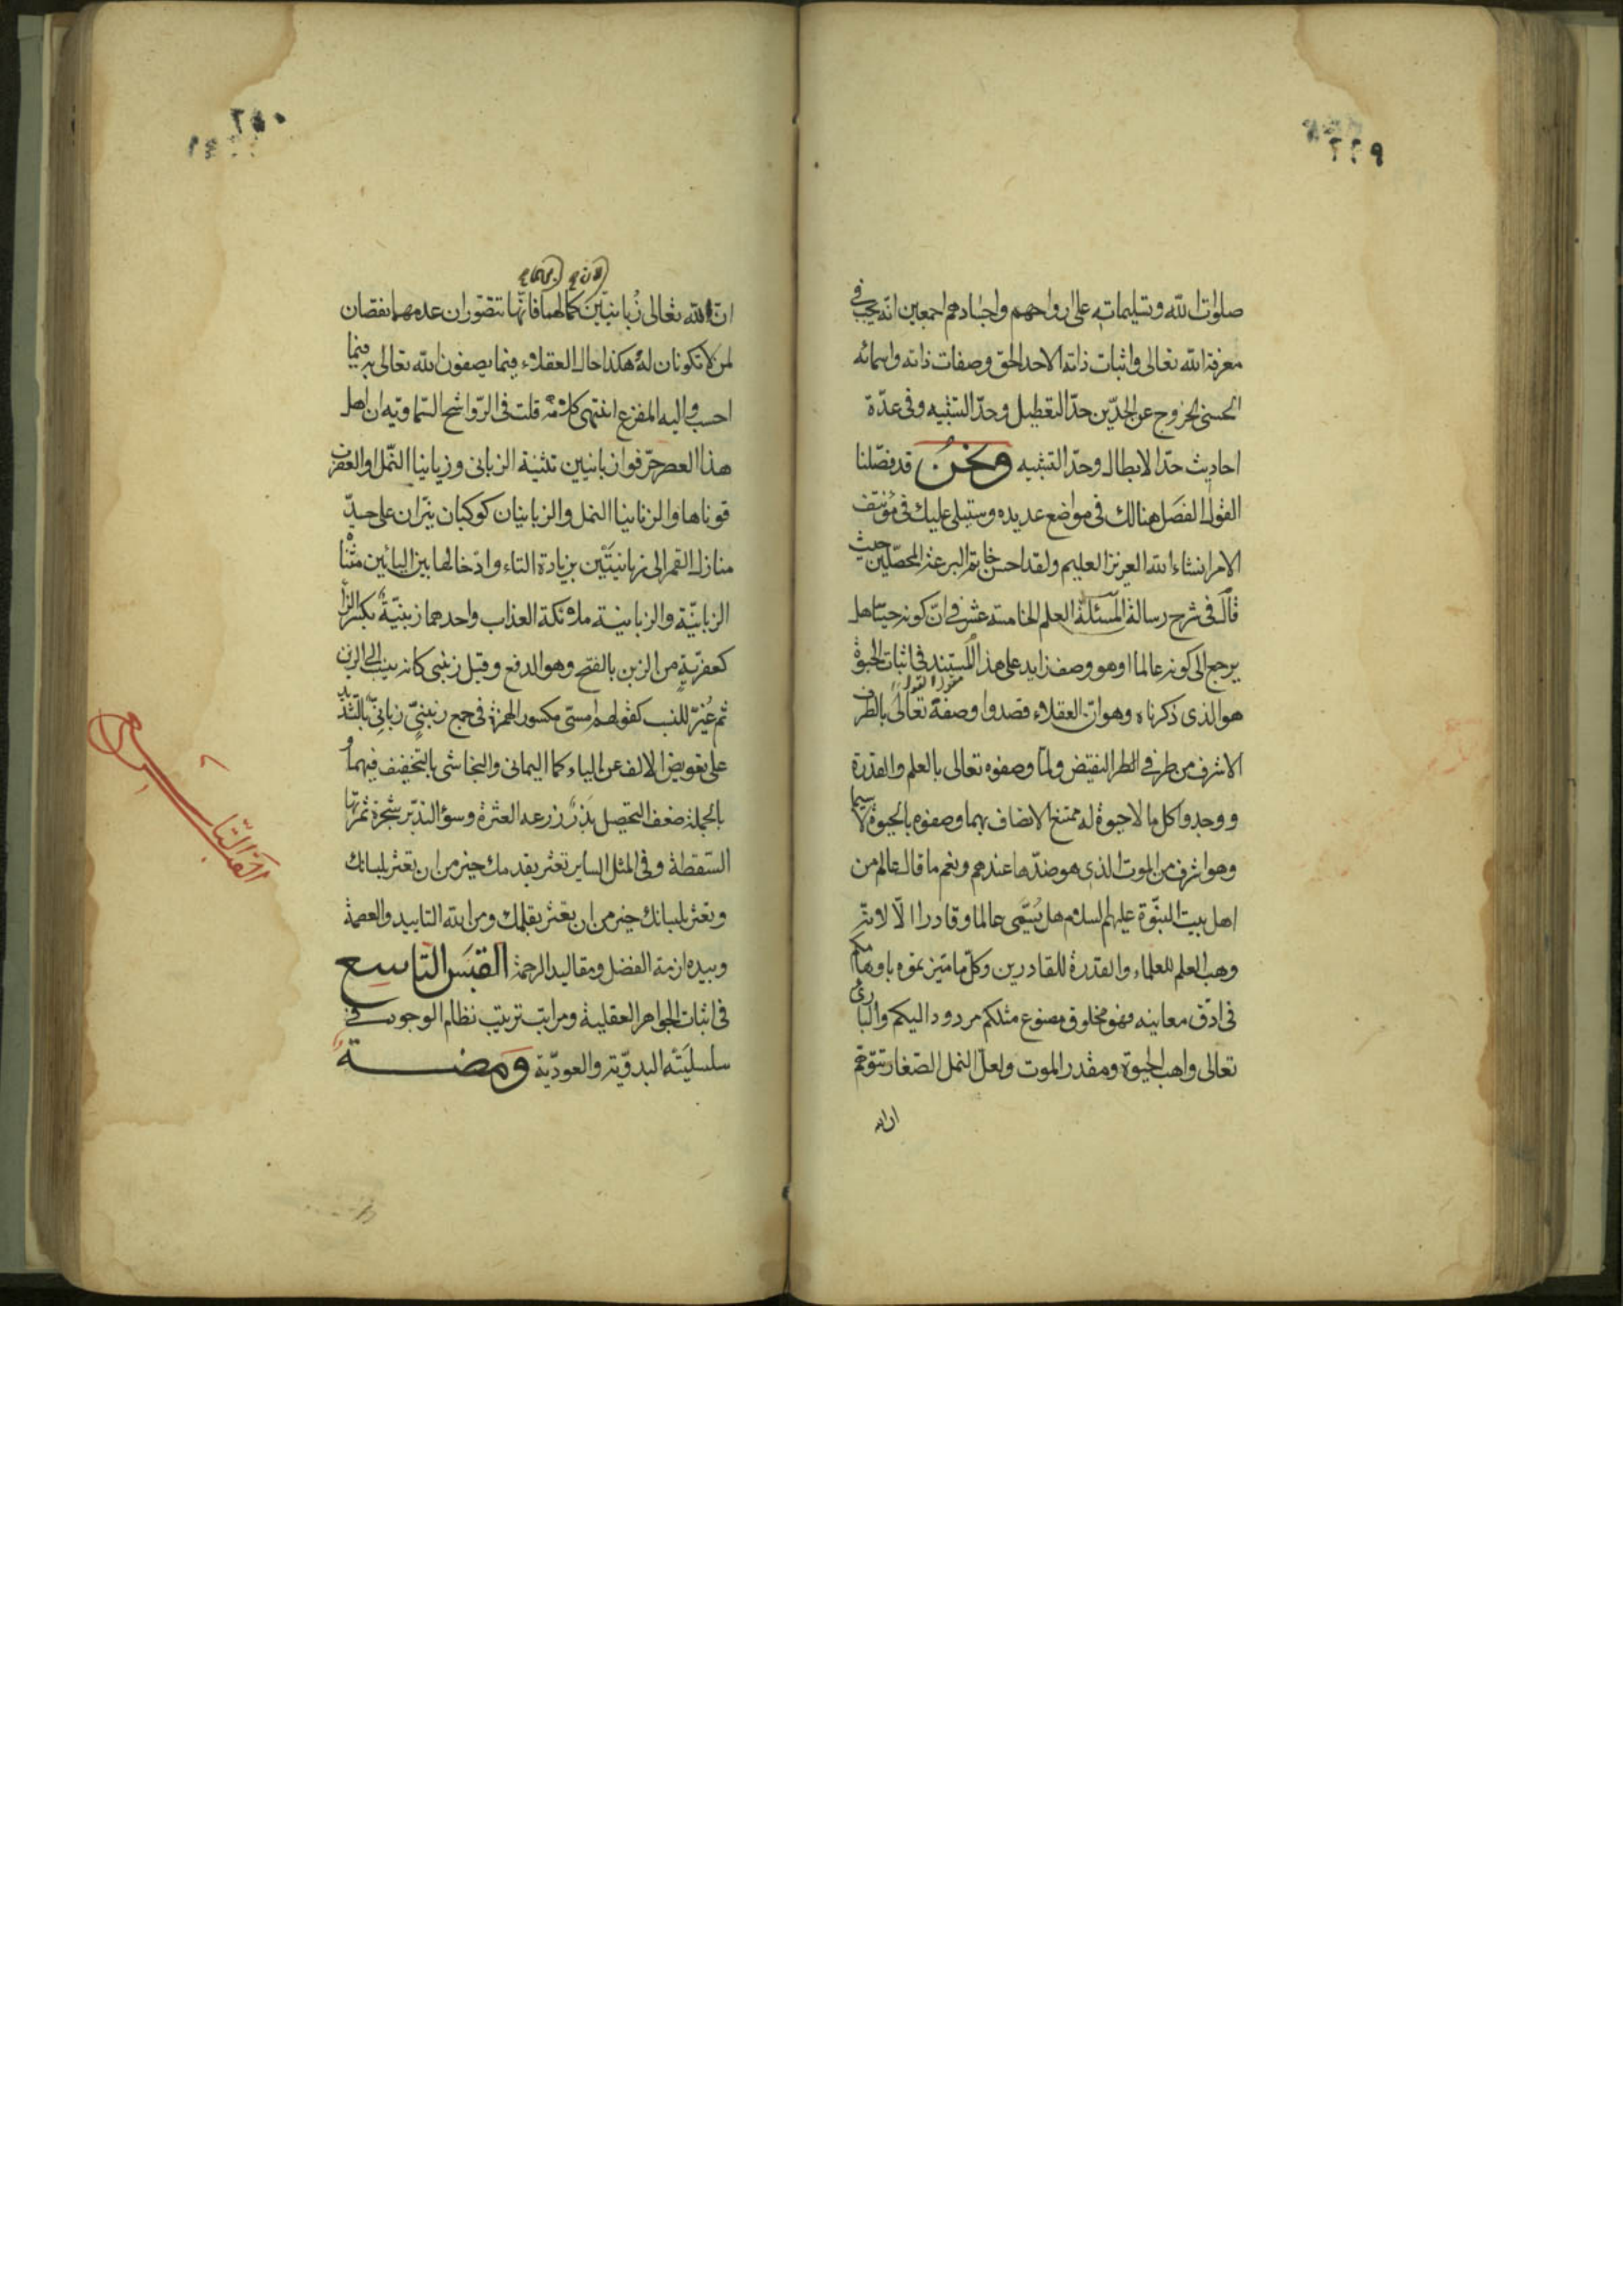 صلوات الله وتسليماته على ارواحهم واجسادهم اجمعين انه يجب في
معرفة الله تعالى واثبات ذاته الاحد الحق وصفات ذاته واسمائه
الحسنى الخروج عن الحدّين حدّ التعطيل وحدّ التشبيه وفى عدّة
احاديث حدّ الابطال وحدّ التشبيه ونحن قد فصّلنا
القول الفصل هنالك فى مواضع عديده وستيلى عليك فى مؤتنف
الامر انشاء الله العزيز العليم ولقد احسن خاتم البرعة المحصّلين حيث
قال فى شرح رسالة المسئلة العلم الخامسة عشر فى ان كونه حيّا هل
يرجع الى كونه عالما او هو وصف زايد على هذا المستند فى اثبات الحيوة
هو الذى ذكرناه وهو ان العقلاء قصدوا وصفه تعالى بالطرف
الاشرف من طرفى النقيض ولما وصفوه تعالى بالعلم والقدرة
ووجدوا كل ما لا حيوة له ممتنع الاتصاف بهما وصفوه بالحيوة لا سيما
وهو اشرف من الموت الذى هو ضدّها عندهم ونعم ما قال عالم من
اهل بيت النبّوة عليهم السلام هل يُسمّى عالما وقادرا الّا لانه
وهب العلم للعلماء والقدرة للقادرين وكلّ ما ميّزتموه باوهامكم
فى ادقّ معانيه فهو مخلوق مصنوع مثلكم مردود اليكم والبارئ
تعالى واهب الحيوة ومقدر الموت ولعلّ النمل الصّغار تتوهّم
ان لله
ان لله تعالى زُبانيتين كما لها فانّها تتصوّر ان عدمهما نقصان
لمن لا تكونان له هكذا حال العقلاء فيما يصفون الله تعالى به فيما
احسب واليه المفزع انتهى كلامه قلت فى الرّواشح السّماوية ان اهل
هذا العصر حرّفوا زبانيين تثنية الزبانى وزبانيا النّمل او العقرب
قرناها والزبانيا النمل والزبانيان كوكبان نيّران على حدّ
منازل القمر الى زبانيتَيّن بزيادة التاء وادخالها بين اليائين مثنّا
الزبانيّة والزبانية ملائكة العذاب واحدهما زبنيّة بكسر الزا
كعفرية من الزبن بالفتح وهو الدفع وقيل زبنى كانه نسب الى الزبن
ثم غُيّر للنسب كقولهم امسىّ مكسور الهمزة فى جمع زبنىّ زبانىّ بالتشديد
على تعويض الالف عن الياء كما اليمانى والنجاشى بالتخفيف فيهما و
بالجملة ضعف التحصيل بذرٌ زرعه العثرة وسؤ التدبّر شجرة ثمرتها
السّقطة وفى المثل الساير تعثر بقدمك خير من ان تعثر بلسانك
وتعثر بلسانك خير من ان تعثر بقلمك ومن الله التاييد والعصمة
وبيده ازمة الفضل ومقاليد الرحمة القبَس التاسِع
فى اثبات الجواهر العقلية ومراتب ترتيب نظام الوجود فى
سلسلتيه البدويّة والعوديّة وَمضــة
القبس التاسع